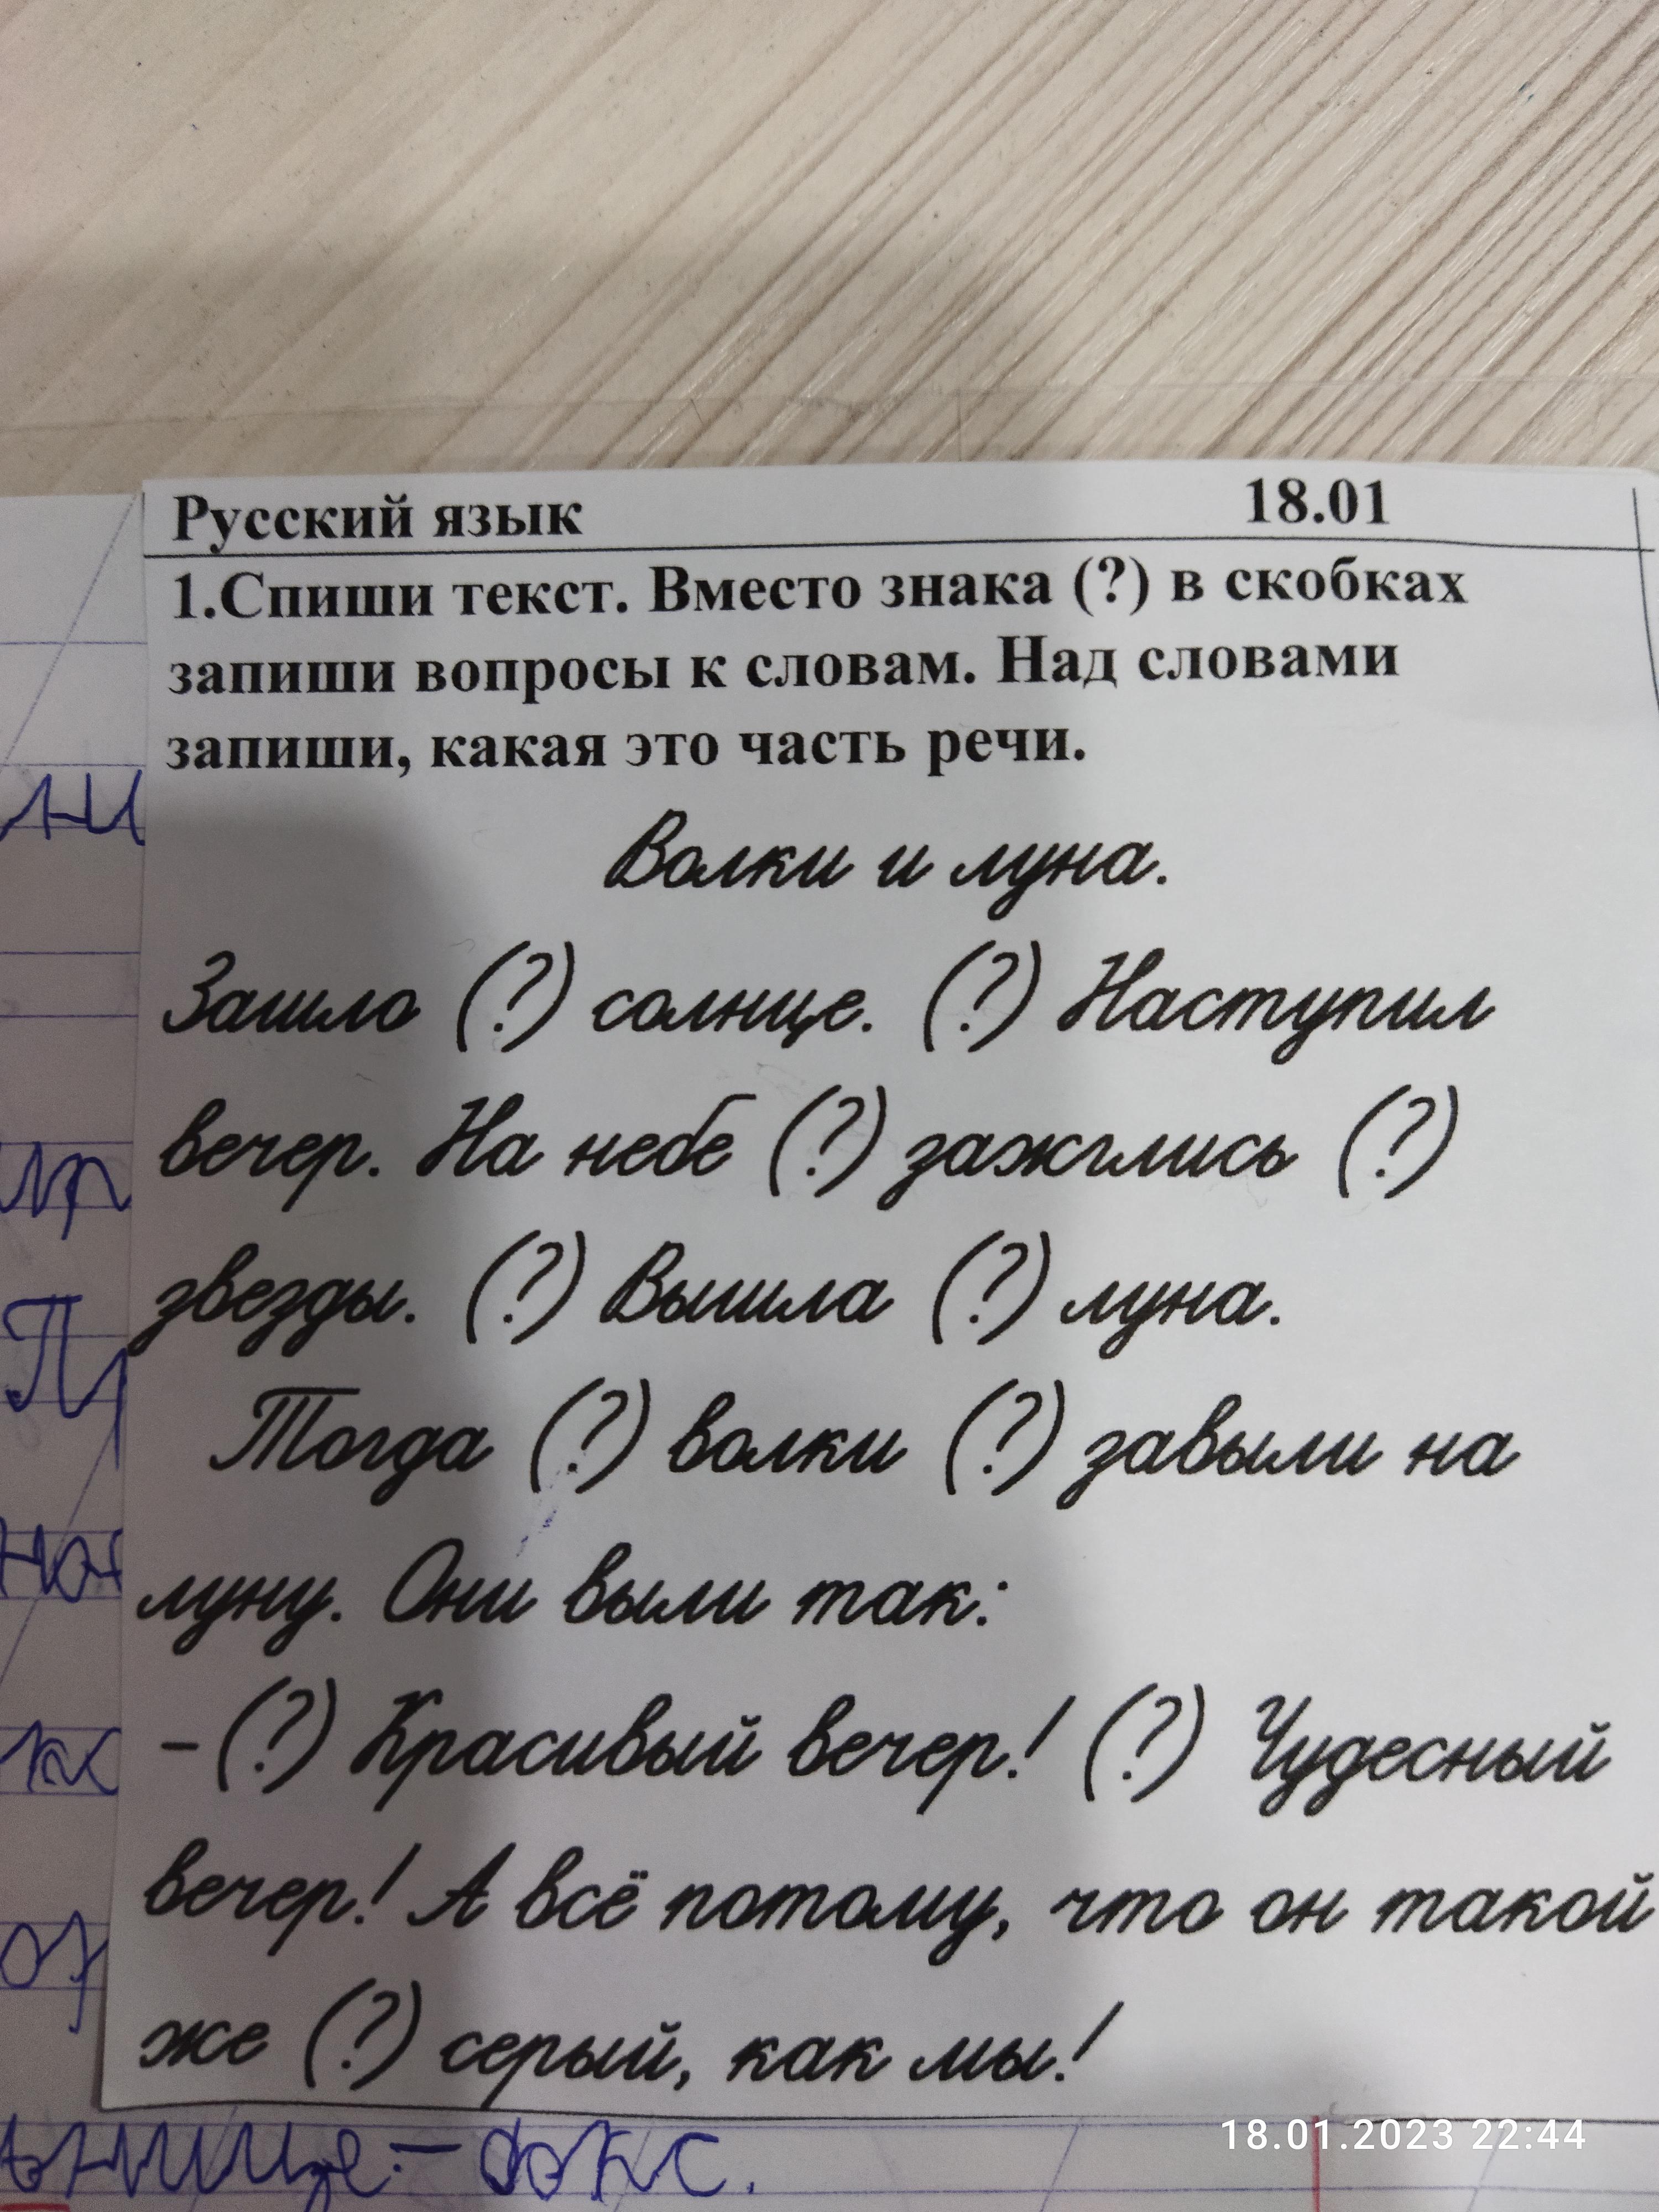 Русский язык 18.01
1.Спиши текст. Вместо знака (?) в скобках
запиши вопросы к словам. Над словами
запиши, какая это часть речи.
Волки и луна.
Зашло (?) солнце. (?) Наступил
вечер. На небе (?) зажглись (?)
звезды. (?) Вышла (?) луна.
Тогда (?) волки (?) завыли на
луну. Они выли так:
-(?) Красивый вечер! (?) Чудесный
вечер! А всё потому, что он такой
же (?) серый, как мы!
18.01.2023 22:44